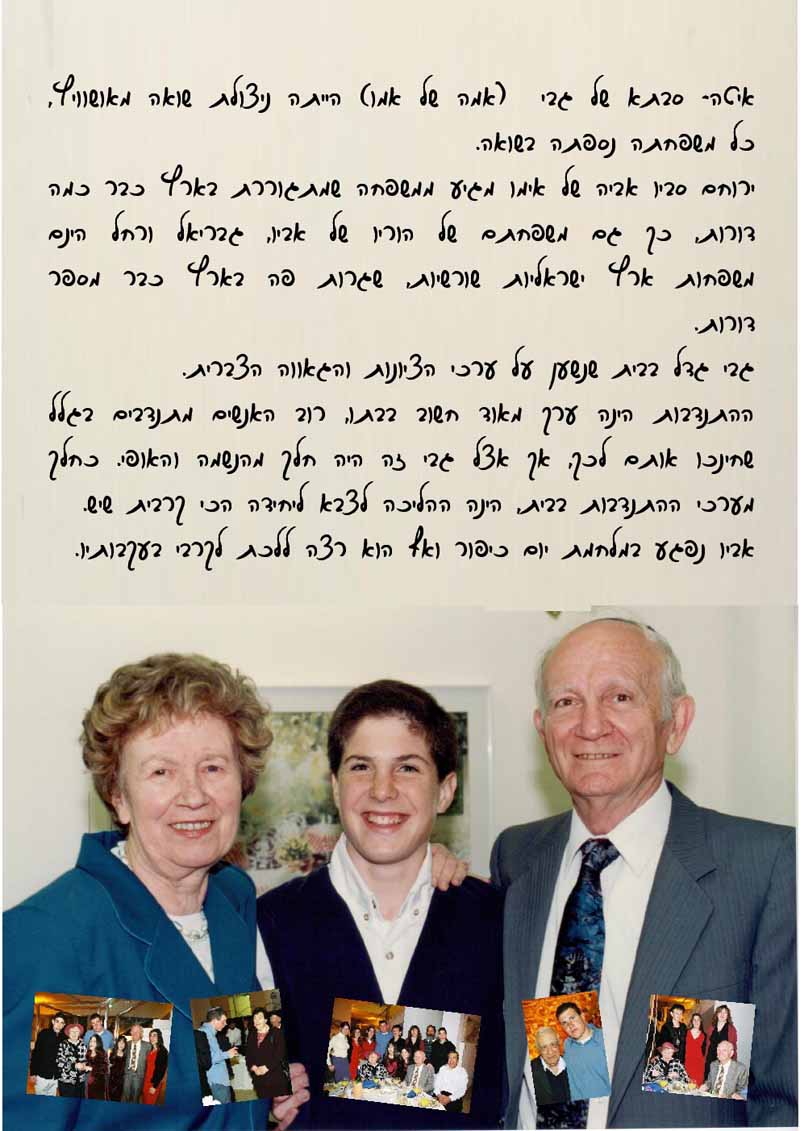 איטה- סבתא של גבי (אמה של אמו) הייתה ניצולת שואה מאושוויץ,
כל משפחתה נספתה בשואה.
ירוחם סביו אביה של אימו מגיע ממשפחה שמתגוררת בארץ כבר כמה
דורות, כך גם משפחתם של הוריו של אביו, גבריאל ורחל הינם
משפחות ארץ ישראליות שורשיות, שגרות פה בארץ כבר מספר
דורות.
גבי גדל בבית שנשען על ערכי הציונות והגאווה הצברית.
ההתנדבות הינה ערך מאוד חשוב בבתו, רוב האנשים מתנדבים בגלל
שחינכו אותם לכך, אך אצל גבי זה היה חלק מהנשמה והאופי. כחלק
מערכי ההתנדבות בבית, הינה ההליכה לצבא ליחידה הכי קרבית שיש.
אביו נפגע במלחמת יום כיפור ואף הוא רצה ללכת לקרבי בעקבותיו.